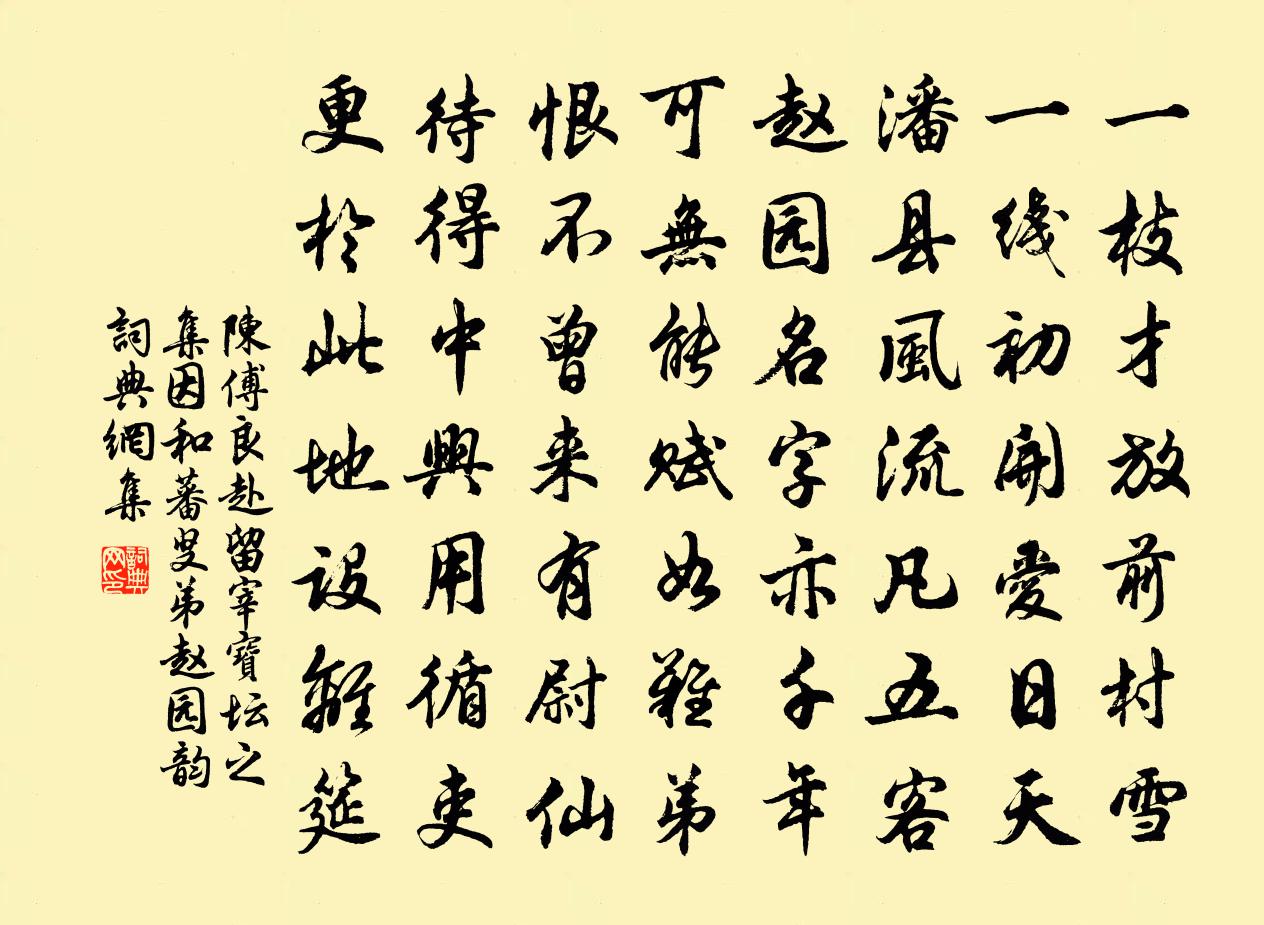 一枝才放前村雪
一线初開愛日天
潘县風流凡五客
赵园名字亦千年
可無能赋如難弟
恨不曾来有尉仙
待得中興用循吏
更於此地設離筵
陳傅良赴留宰寶坛之
集因和蕃叟弟赵园韵
詞典網集
詞典网印